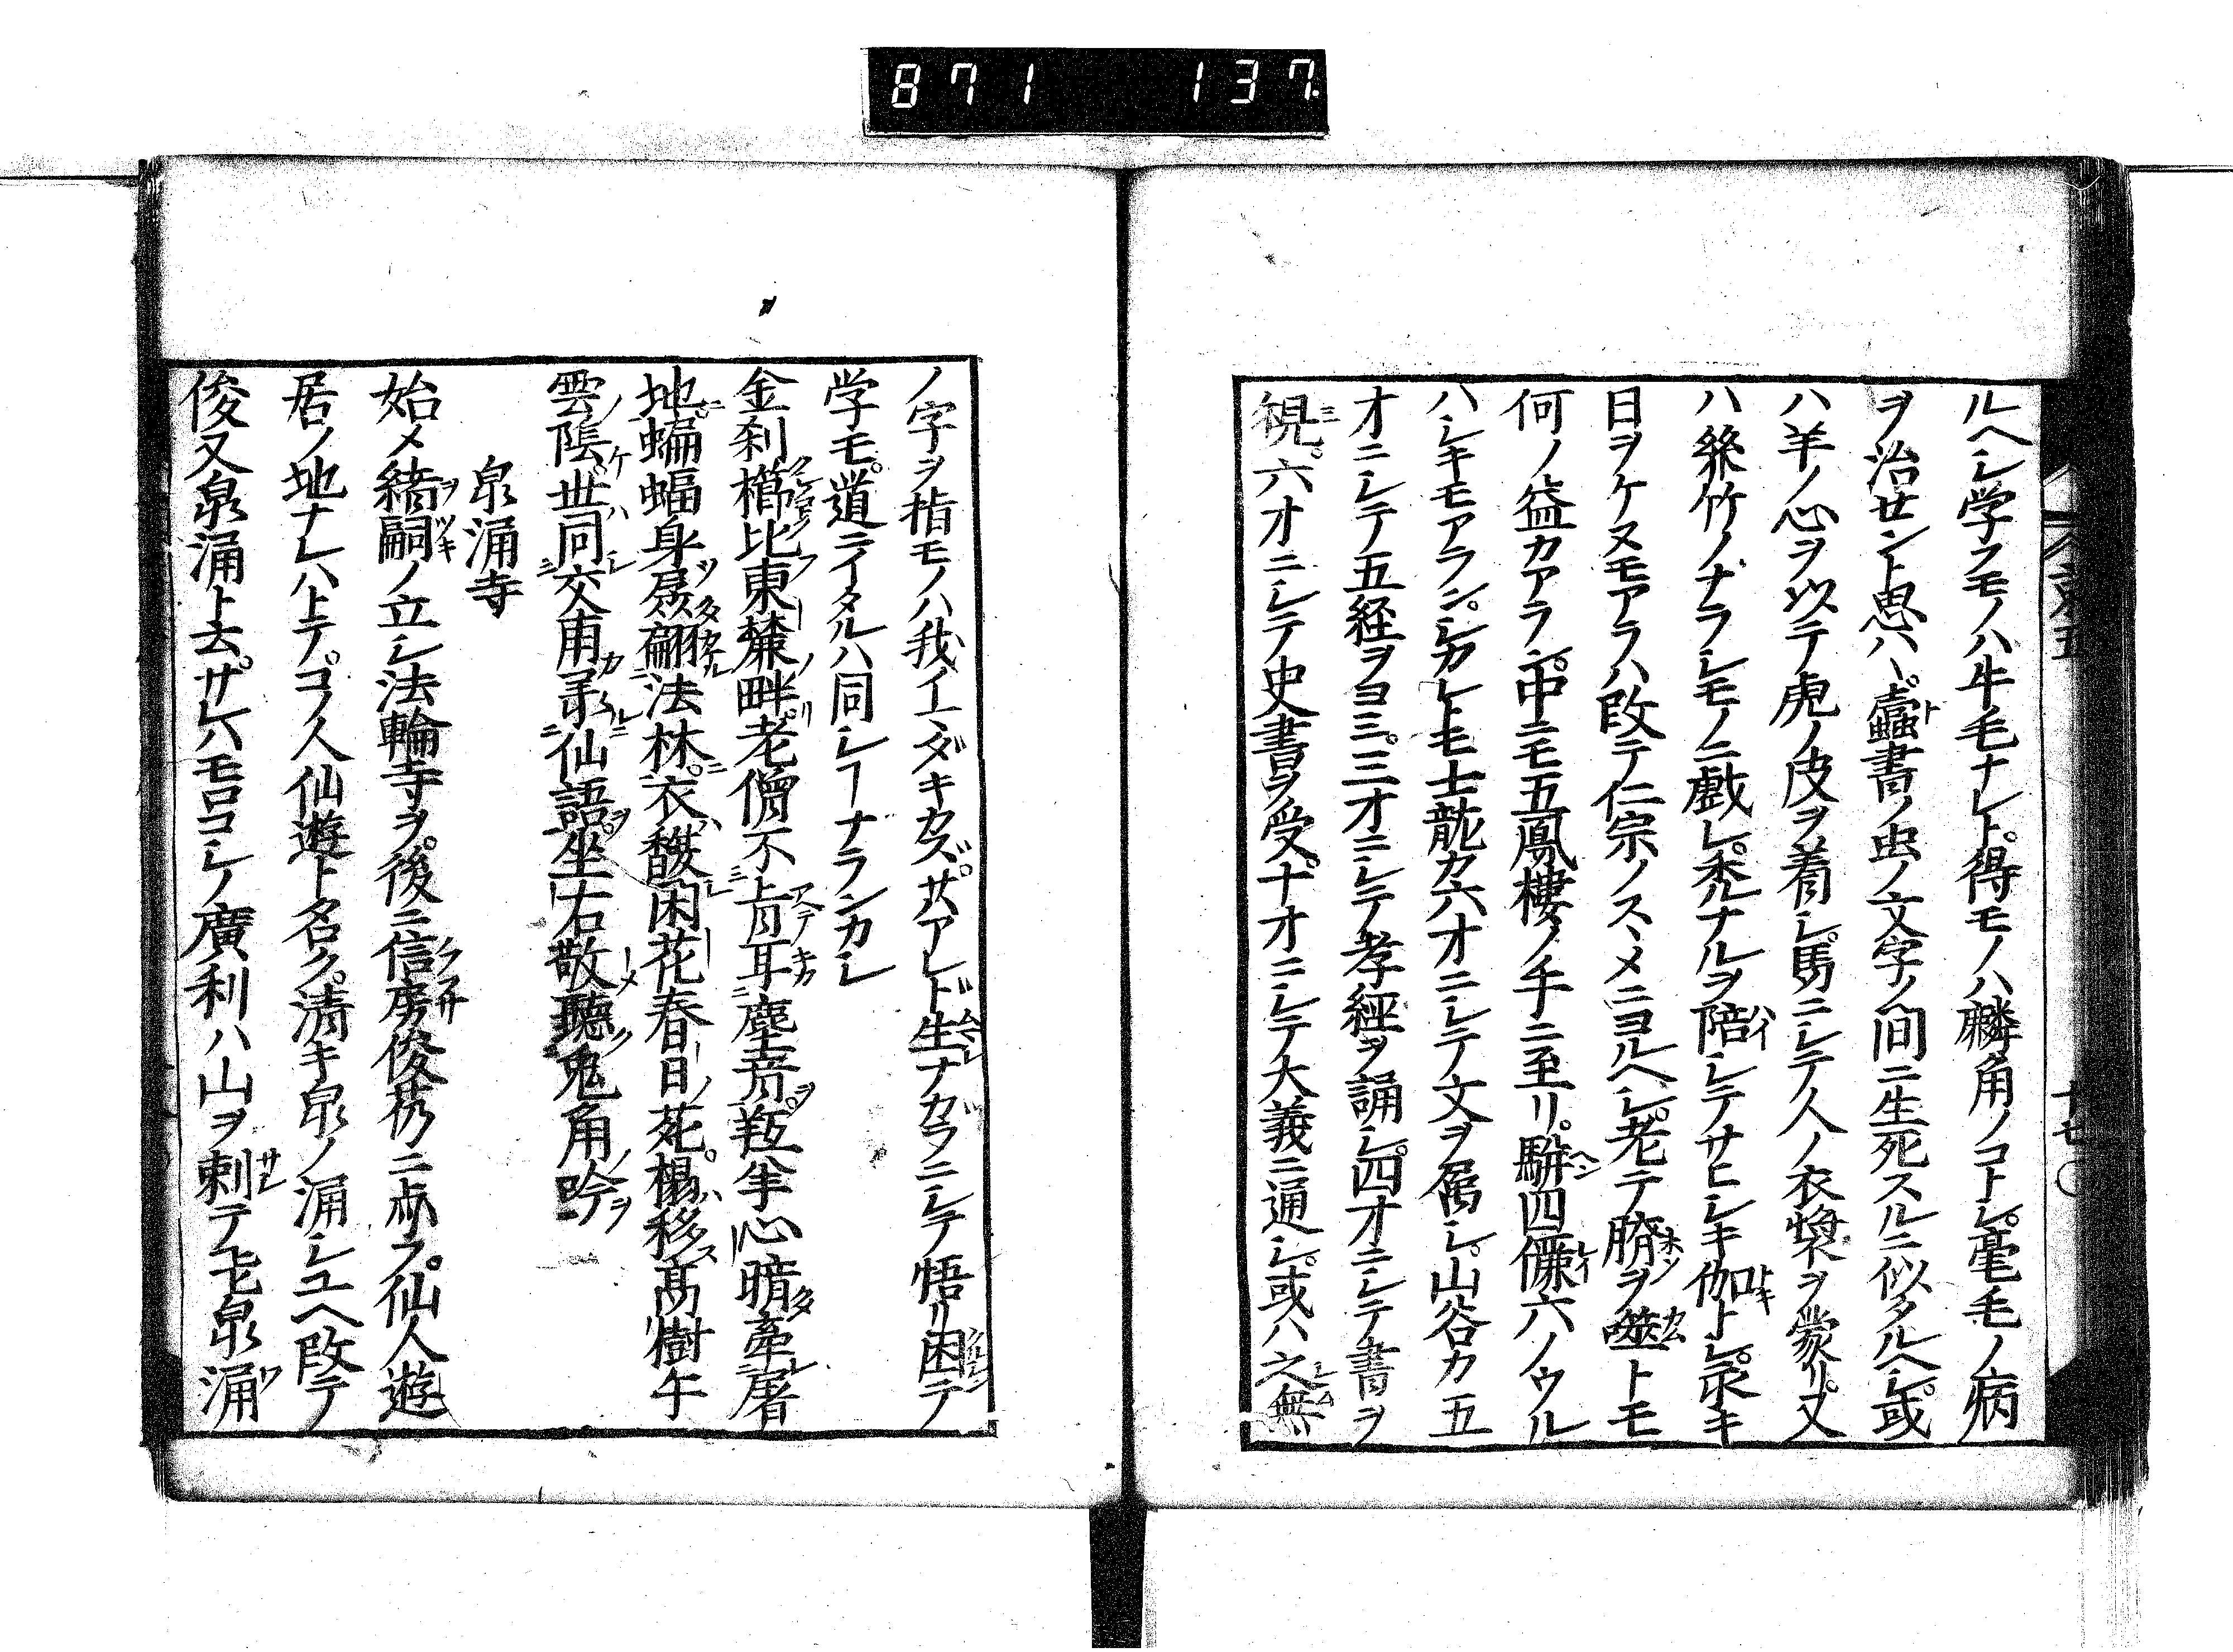 871 137
ルヘシ学フモノハ牛毛ナレト得モノハ麟角ノコトシ毫毛ノ病
ヲ治セント思ヘハ蠧書ノ虫ノ文字ノ間ニ生死スルニ似タルヘシ或
ハ羊ノ心ヲ以テ虎ノ皮ヲ着シ馬ニシテ人ノ衣ヲ蒙リ又
ハ絲竹ノナラシモノニ戯レ秃ナルヲ陪シテサヒシキ伽トシ永キ
日ヲケヌモアラハ改テ仁宗ノスヽメニヨルヘシ老テ臍ヲ噬トモ
何ノ益カアラン中ニモ五鳳樓ノ手ニ至リ駢四儷六ノウル
ハシキモアランシカレトモ士龍カ六才ニシテ文ヲ属シ山谷カ五
才ニシテ五経ヲヨミ三才ニシテ孝經ヲ誦シ四才ニシテ書ヲ
視六才ニシテ史書ヲ受十才ニシテ大義ニ通シ或ハ之無
ノ字ヲ指モノハ我イヽダキカズサアレド生ナカラニシテ悟リ困テ
学モ道ニイタルハ同シーナランカシ
金刹櫛比東麓畔老僧不肯耳塵音羝羊心暗牽屠
地蝙蝠身翾法林衣馥閑花春日苑榻移高樹午
雲陰世同交甫承仙語坐右敬聽兎角吟
泉涌寺
始メ緒嗣ノ立シ法輪寺ヲ後ニ信房俊芿ニ示ラ仙人遊
居ノ地ナレハトテコノ人仙遊ト名ク清キ泉ノ涌シユヘ改テ
俊又泉涌ト云サレハモロコシノ廣利ハ山ヲ刺テ飛泉涌